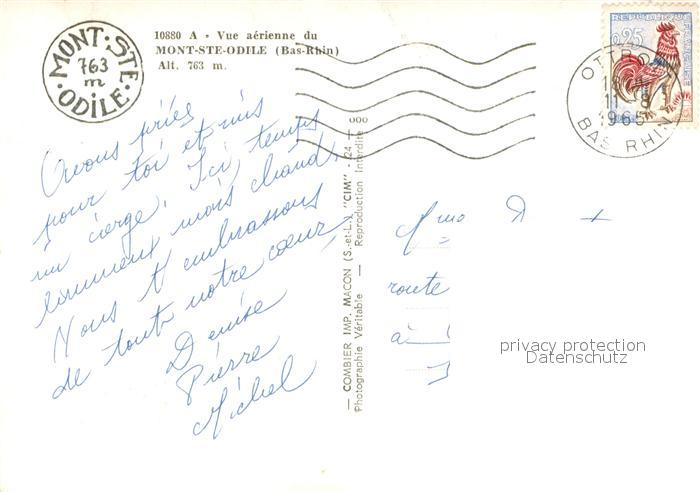 MONT-STE-ODILE
763
m
10880 A - Vue aérienne du
MONT-STE-ODILE (Bas-Rhin)
Alt. 763 m.
REPUBLIQUE FRANÇAISE
0,25
OTTRO
18H
11-8
1965
BAS RHIN
Avons priés
pour toi et mis
un cierge. Ici, temps
brumeux mais chaud.
Nous t'embrassons
de tout notre cœur,
Denise
Pierre
Michel
— COMBIER IMP. MACON (S.-et-L.) "CIM" —
Photographie Véritable — Reproduction Interdite
24
Mme
route
à
privacy protection
Datenschutz